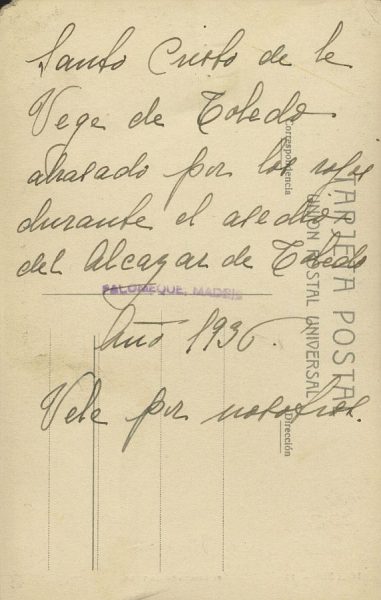 Santo Cristo de la
Vega de Toledo
abrasado por los rojos
durante el asedio
del Alcazar de Toledo
PALOMEQUE, MADRID
Año 1936.
Vele por nosotros.
TARJETA POSTAL
UNIÓN POSTAL UNIVERSAL
Correspondencia
Dirección